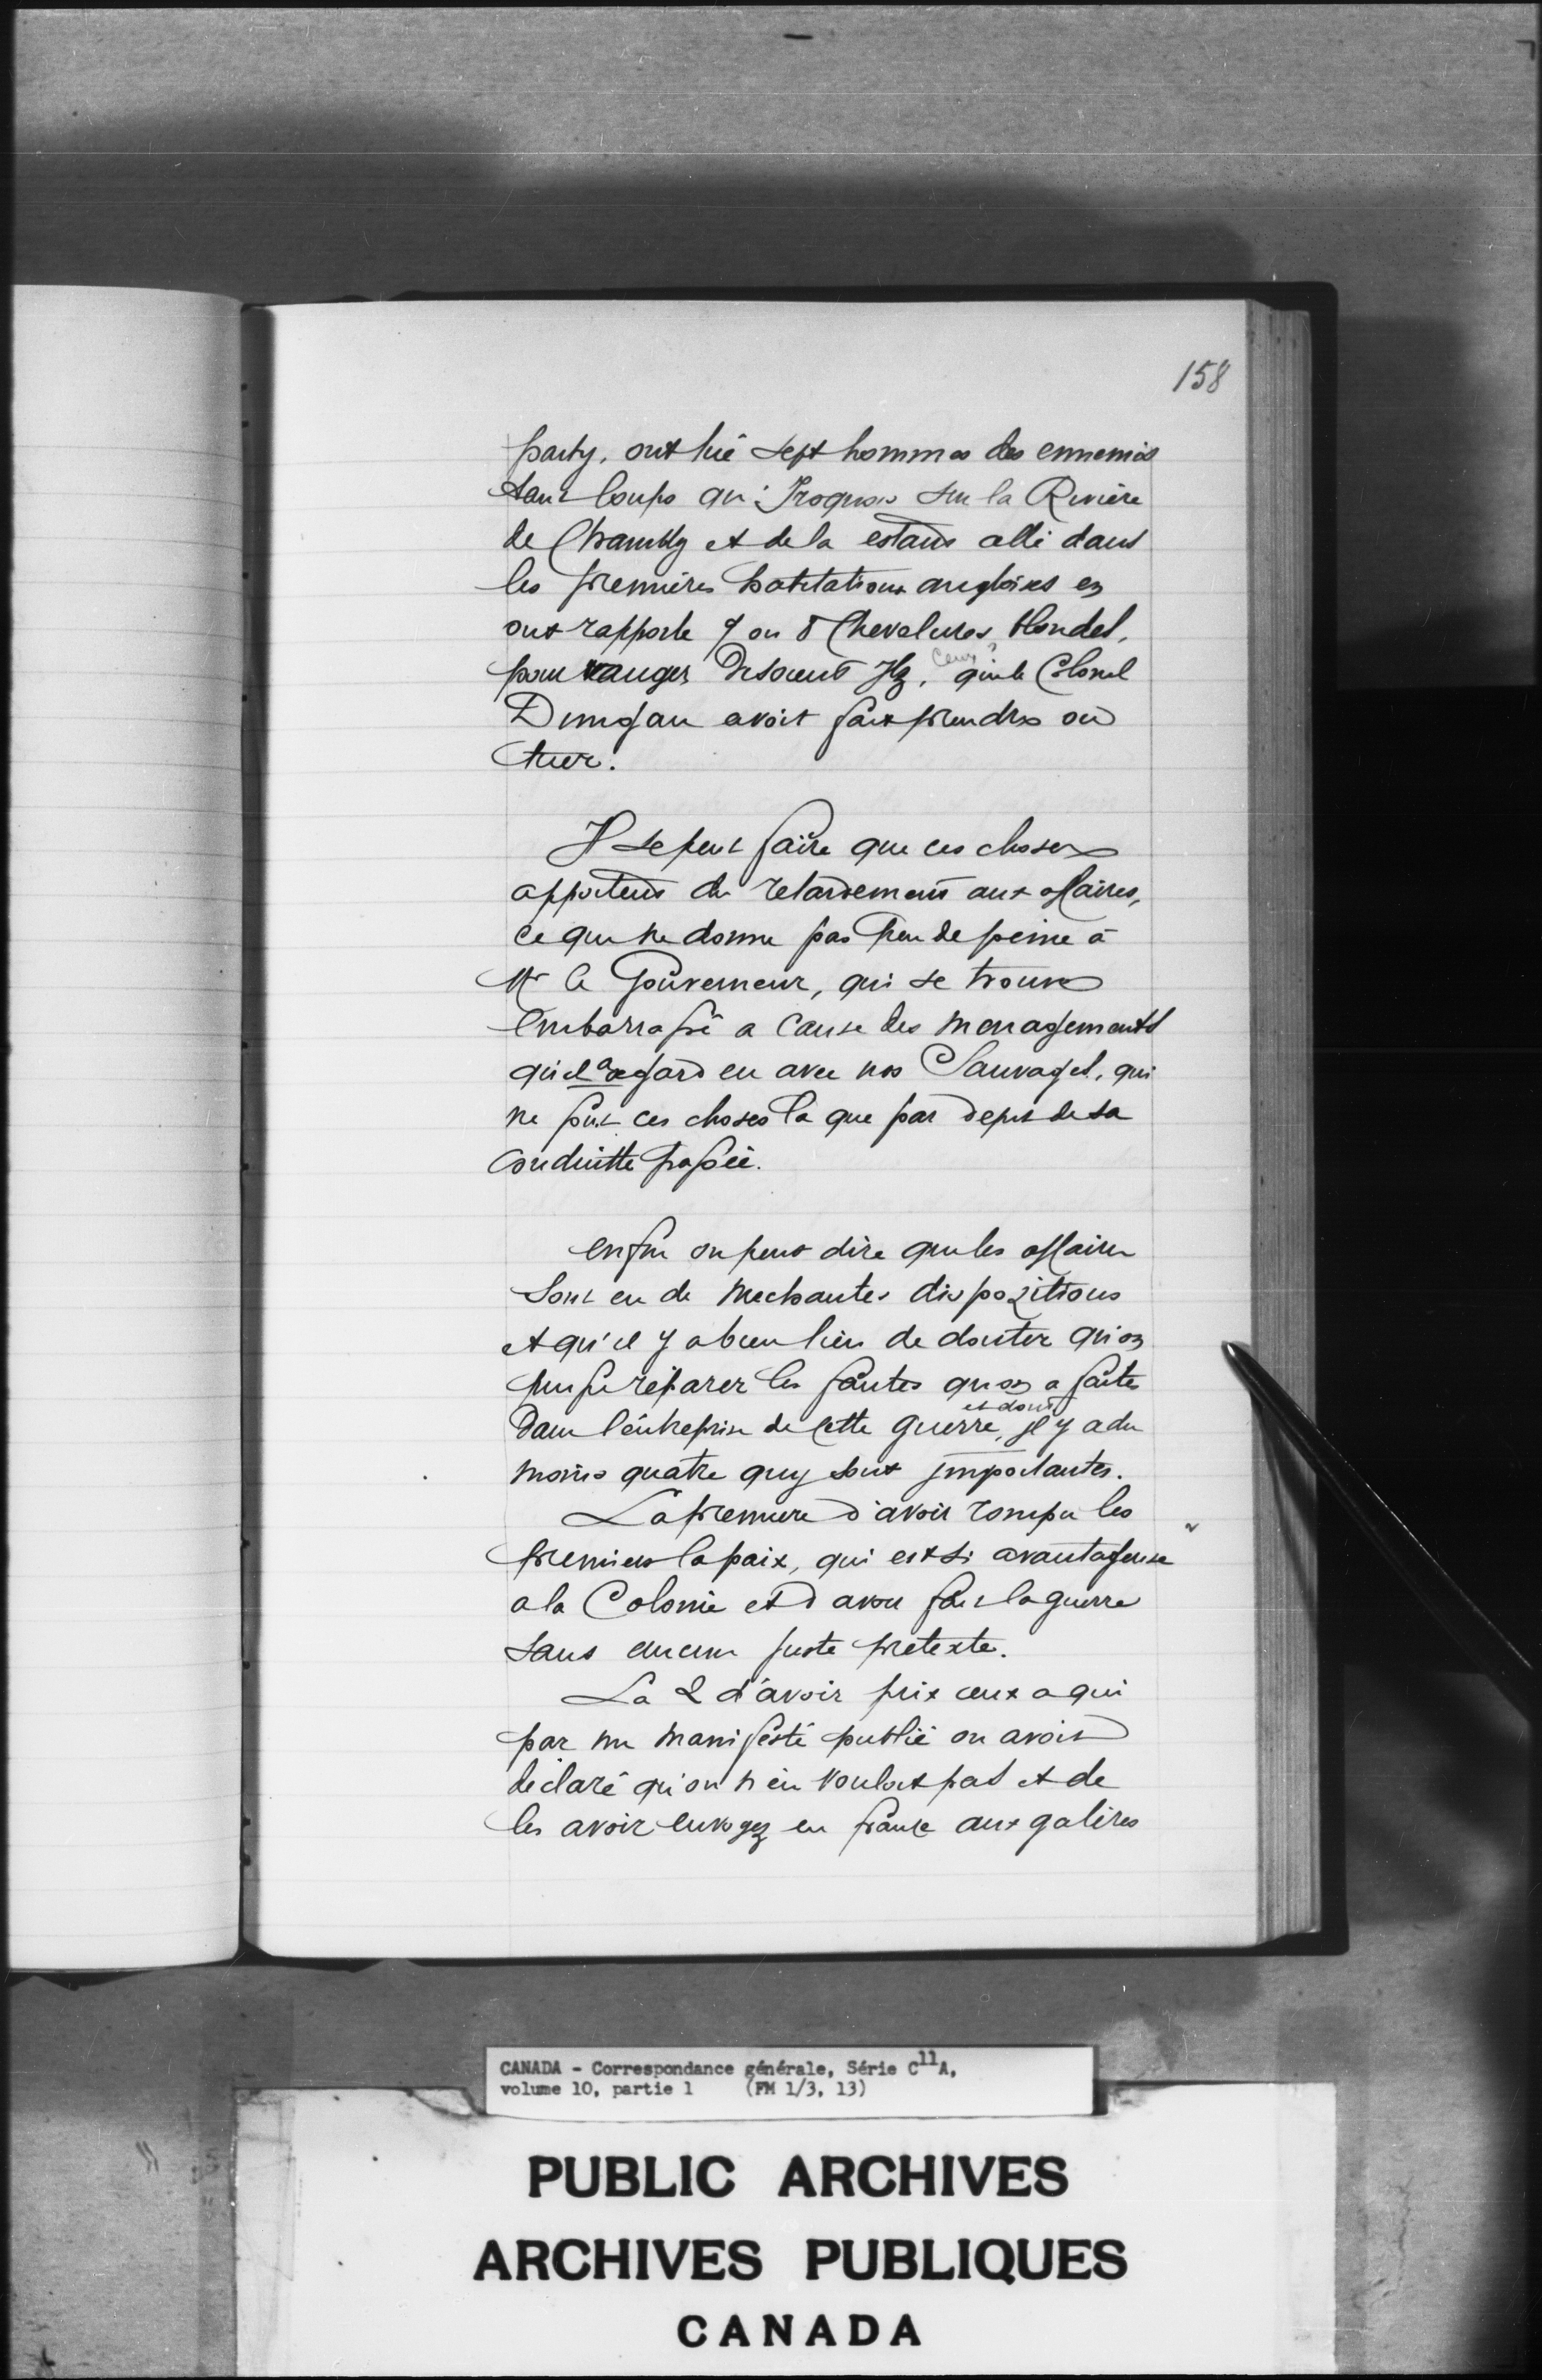 158
party, ont tué sept hommes des ennemis
tant loups qu'Iroquois sur la Rivière
de Chambly et de la estans allé dans
les premières habitations angloises en
ont rapporté 7 ou 8 Chevelures blondes,
pour vanger Disoient Ilz, ceux? que le Colonel
Dungan avoit fait prendre ou
tuer.
Il se peut faire que ces choses
apportent du retardement aux affaires,
ce qui ne donne pas peu de peine à
Mr le Gouverneur, qui se trouve
Embarrassé a Cause des menagements
qu'il a a garder avec nos Sauvages, qui
ne font ces choses la que par depit de sa
Conduitte passée.
enfin on peut dire que les affaires
Sont en de mechantes dispozitions
et qu'il y a bien lieu de douter qu'on
puisse réparer les fautes qu'on a faites
Dans l'entreprise de cette guerre, et dont il y a du
moins quatre quy sont jmportantes.
La premiere d'avoir rompu les
premiers la paix, qui est si avantageuse
a la Colonie et d'avoir fait la guerre
sans aucun juste pretexte.
La 2 d'avoir pris ceux a qui
par un manifesté publié on avoit
declaré qu'on n'en vouloit pas et de
les avoir envoyez en france aux galères
CANADA - Correspondance générale, Série C11A,
volume 10, partie 1 (FM 1/3, 13)
PUBLIC ARCHIVES
ARCHIVES PUBLIQUES
CANADA